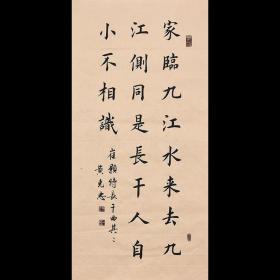 家臨九江水来去九
江側同是長干人自
小不相識
崔顥詩長干曲其二
黄克忠